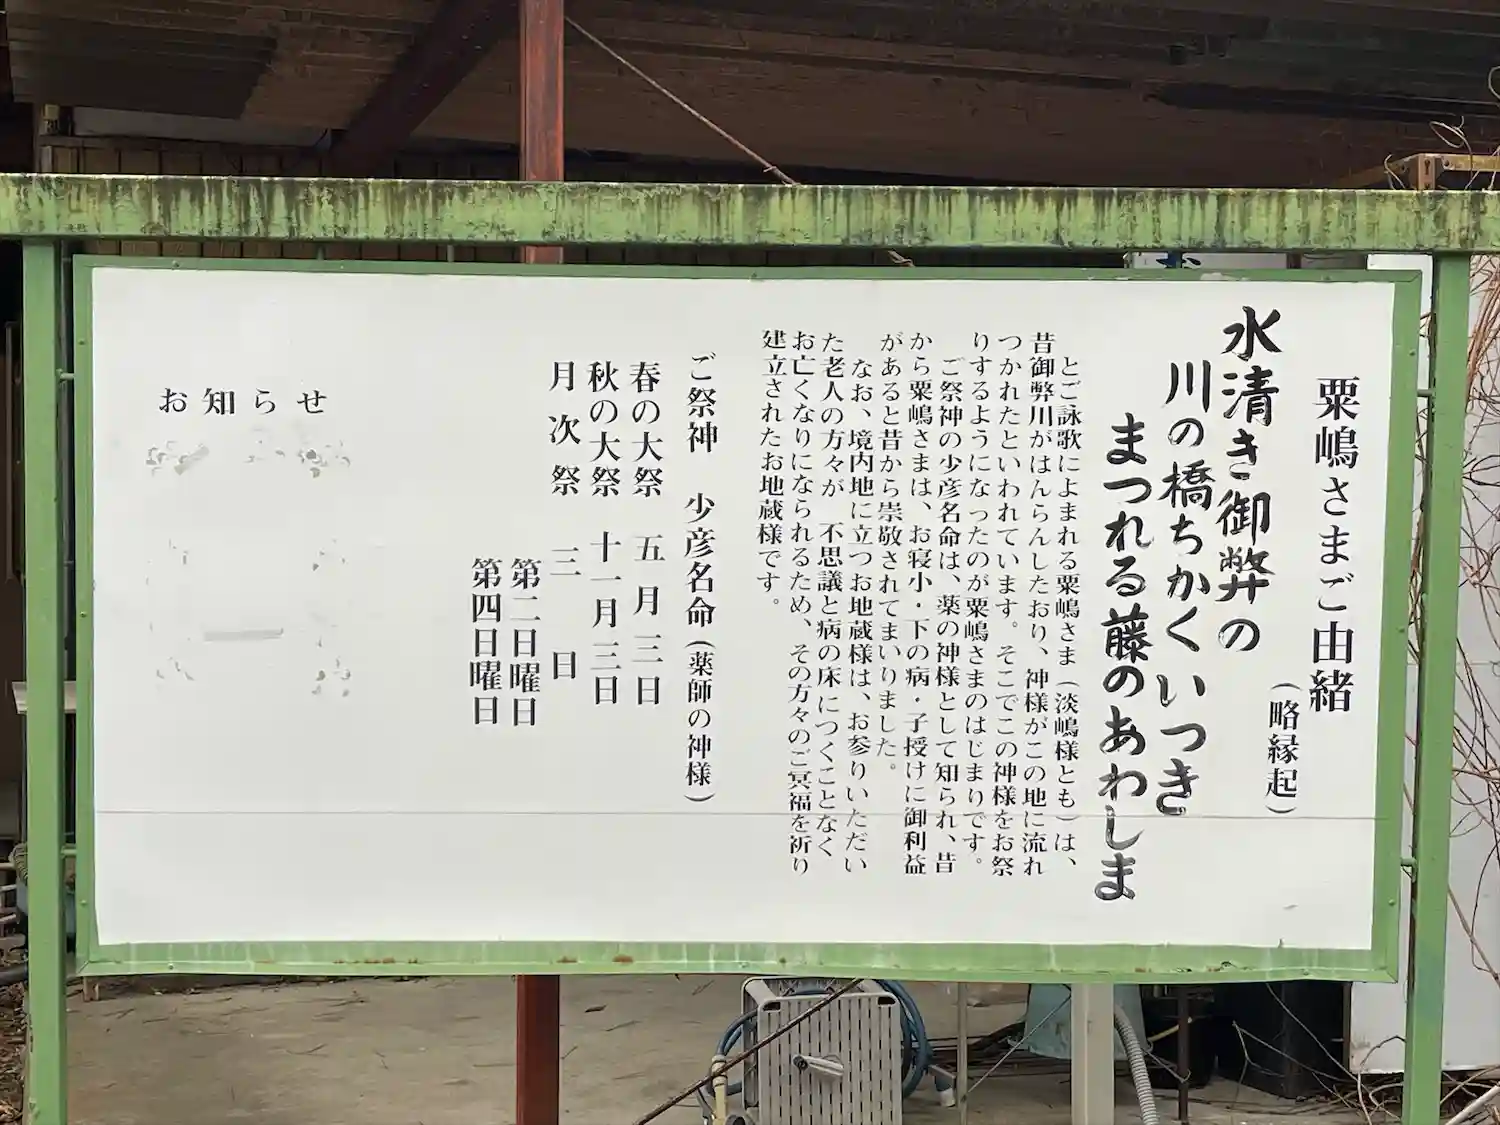 粟嶋さまご由緒
(略縁起)
水清き御弊の
川の橋ちかくいつき
まつれる藤のあわしま
とご詠歌によまれる粟嶋さま(淡嶋様とも)は、
昔御弊川がはんらんしたおり、神様がこの地に流れ
つかれたといわれています。そこでこの神様をお祭
りするようになったのが粟嶋さまのはじまりです。
ご祭神の少彦名命は、薬の神様として知られ、昔
から粟嶋さまは、お寝小・下の病・子授けに御利益
があると昔から崇敬されてまいりました。
なお、境内地に立つお地蔵様は、お参りいただい
た老人の方々が、不思議と病の床につくことなく
お亡くなりになられるため、その方々のご冥福を祈り
建立されたお地蔵様です。
ご祭神 少彦名命(薬師の神様)
春の大祭 五月三日
秋の大祭 十一月三日
月次祭 三日
第二日曜日
第四日曜日
お知らせ